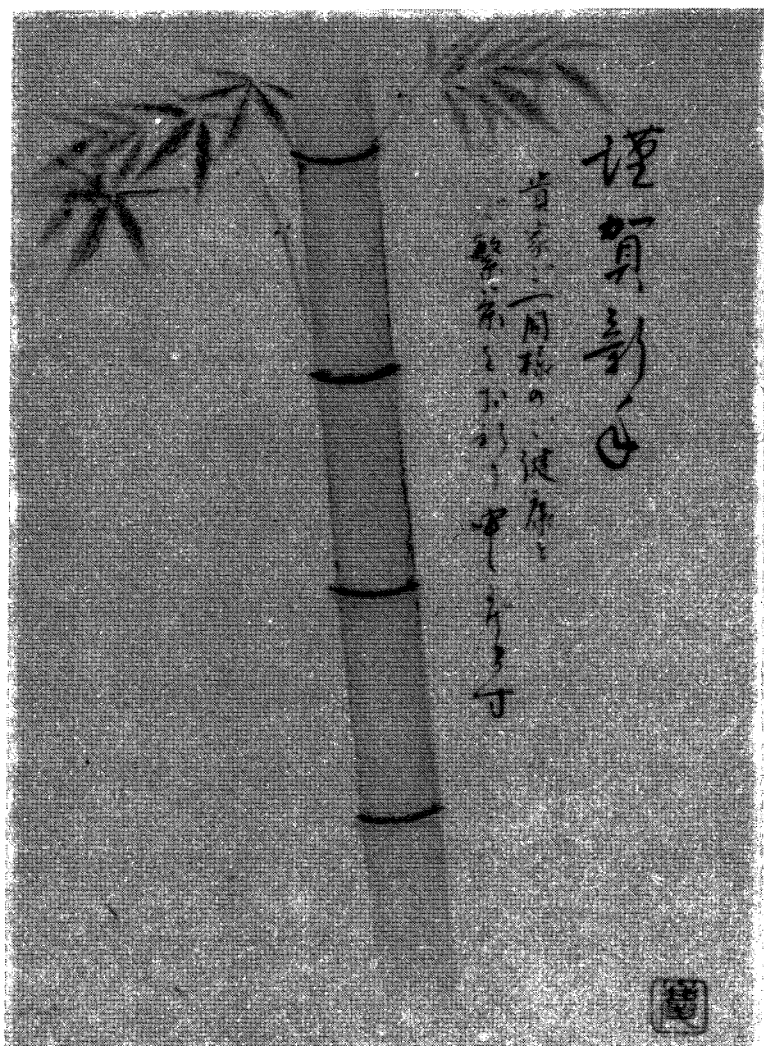 謹賀新年
貴家ご一同様のご健康と
ご繁栄をお祈り申し上ます